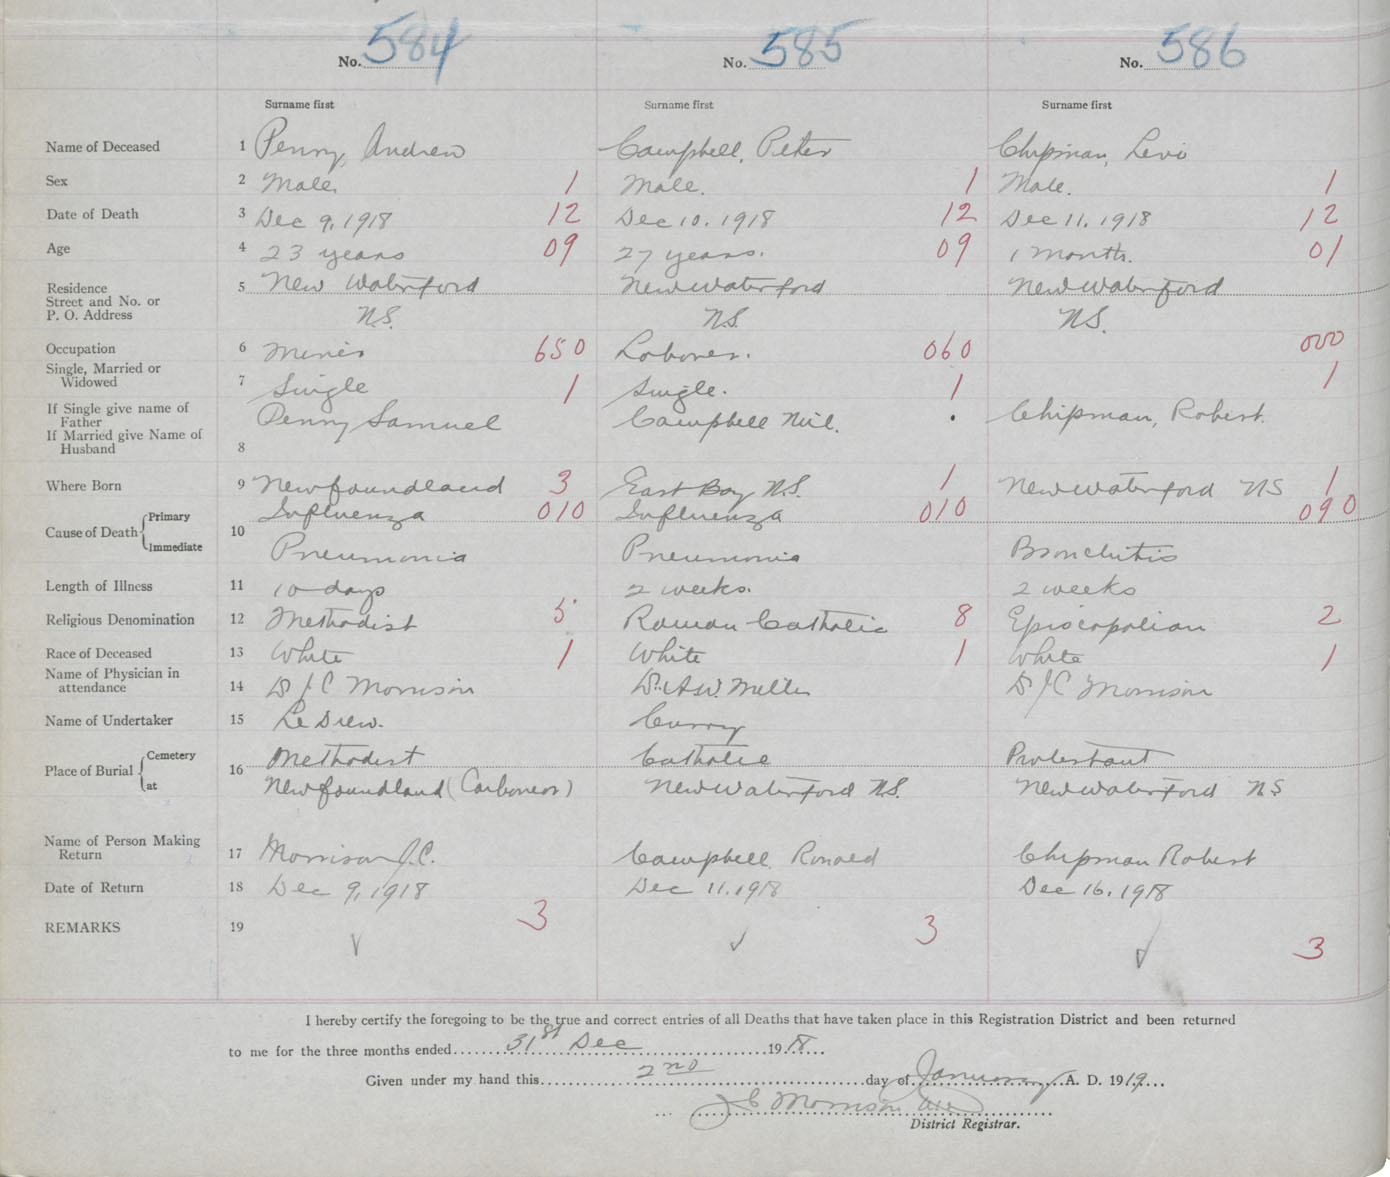 No. 584 No. 585 No. 586
Surname first Surname first Surname first
Name of Deceased 1 Penny, Andrew Campbell, Peter Chipman, Levi
Sex 2 Male. 1 Male. 1 Male. 1
Date of Death 3 Dec 9, 1918 12 Dec 10. 1918 12 Dec 11. 1918 12
Age 4 23 years 09 27 years. 09 1 month. 01
Residence
Street and No. or
P. O. Address
5 New Waterford New Waterford New Waterford
N.S. N.S. N.S.
Occupation 6 Miner 650 Laborer. 060 000
Single, Married or
Widowed
7 Single 1 Single. 1 1
If Single give name of
Father
If Married give Name of
Husband
8 Penny Samuel Campbell Neil. Chipman, Robert.
Where Born 9 Newfoundland 3 East Bay N.S. 1 New Waterford NS 1
Cause of Death Primary Immediate 10
Influenza 010 Influenza 010 090
Pneumonia Pneumonia Bronchitis
Length of Illness 11 10 days 2 weeks. 2 weeks
Religious Denomination 12 Methodist 5 Roman Catholic 8 Episcopalian 2
Race of Deceased 13 White 1 White 1 White 1
Name of Physician in
attendance
14 Dr J C Morrison Dr. A.W. Miller Dr J C Morrison
Name of Undertaker 15 LeDrew. Curry
Place of Burial Cemetery at 16
Methodist Catholic Protestant
Newfoundland (Carbonear) New Waterford N.S. New Waterford NS
Name of Person Making
Return
17 Morrison J.C. Campbell Ronald Chipman Robert
Date of Return 18 Dec 9, 1918 Dec 11. 1918 Dec 16. 1918
REMARKS 19 3 3 3
I hereby certify the foregoing to be the true and correct entries of all Deaths that have taken place in this Registration District and been returned
to me for the three months ended 31st Dec 1918
Given under my hand this 2nd day of January A. D. 1919
J C Morrison
District Registrar.